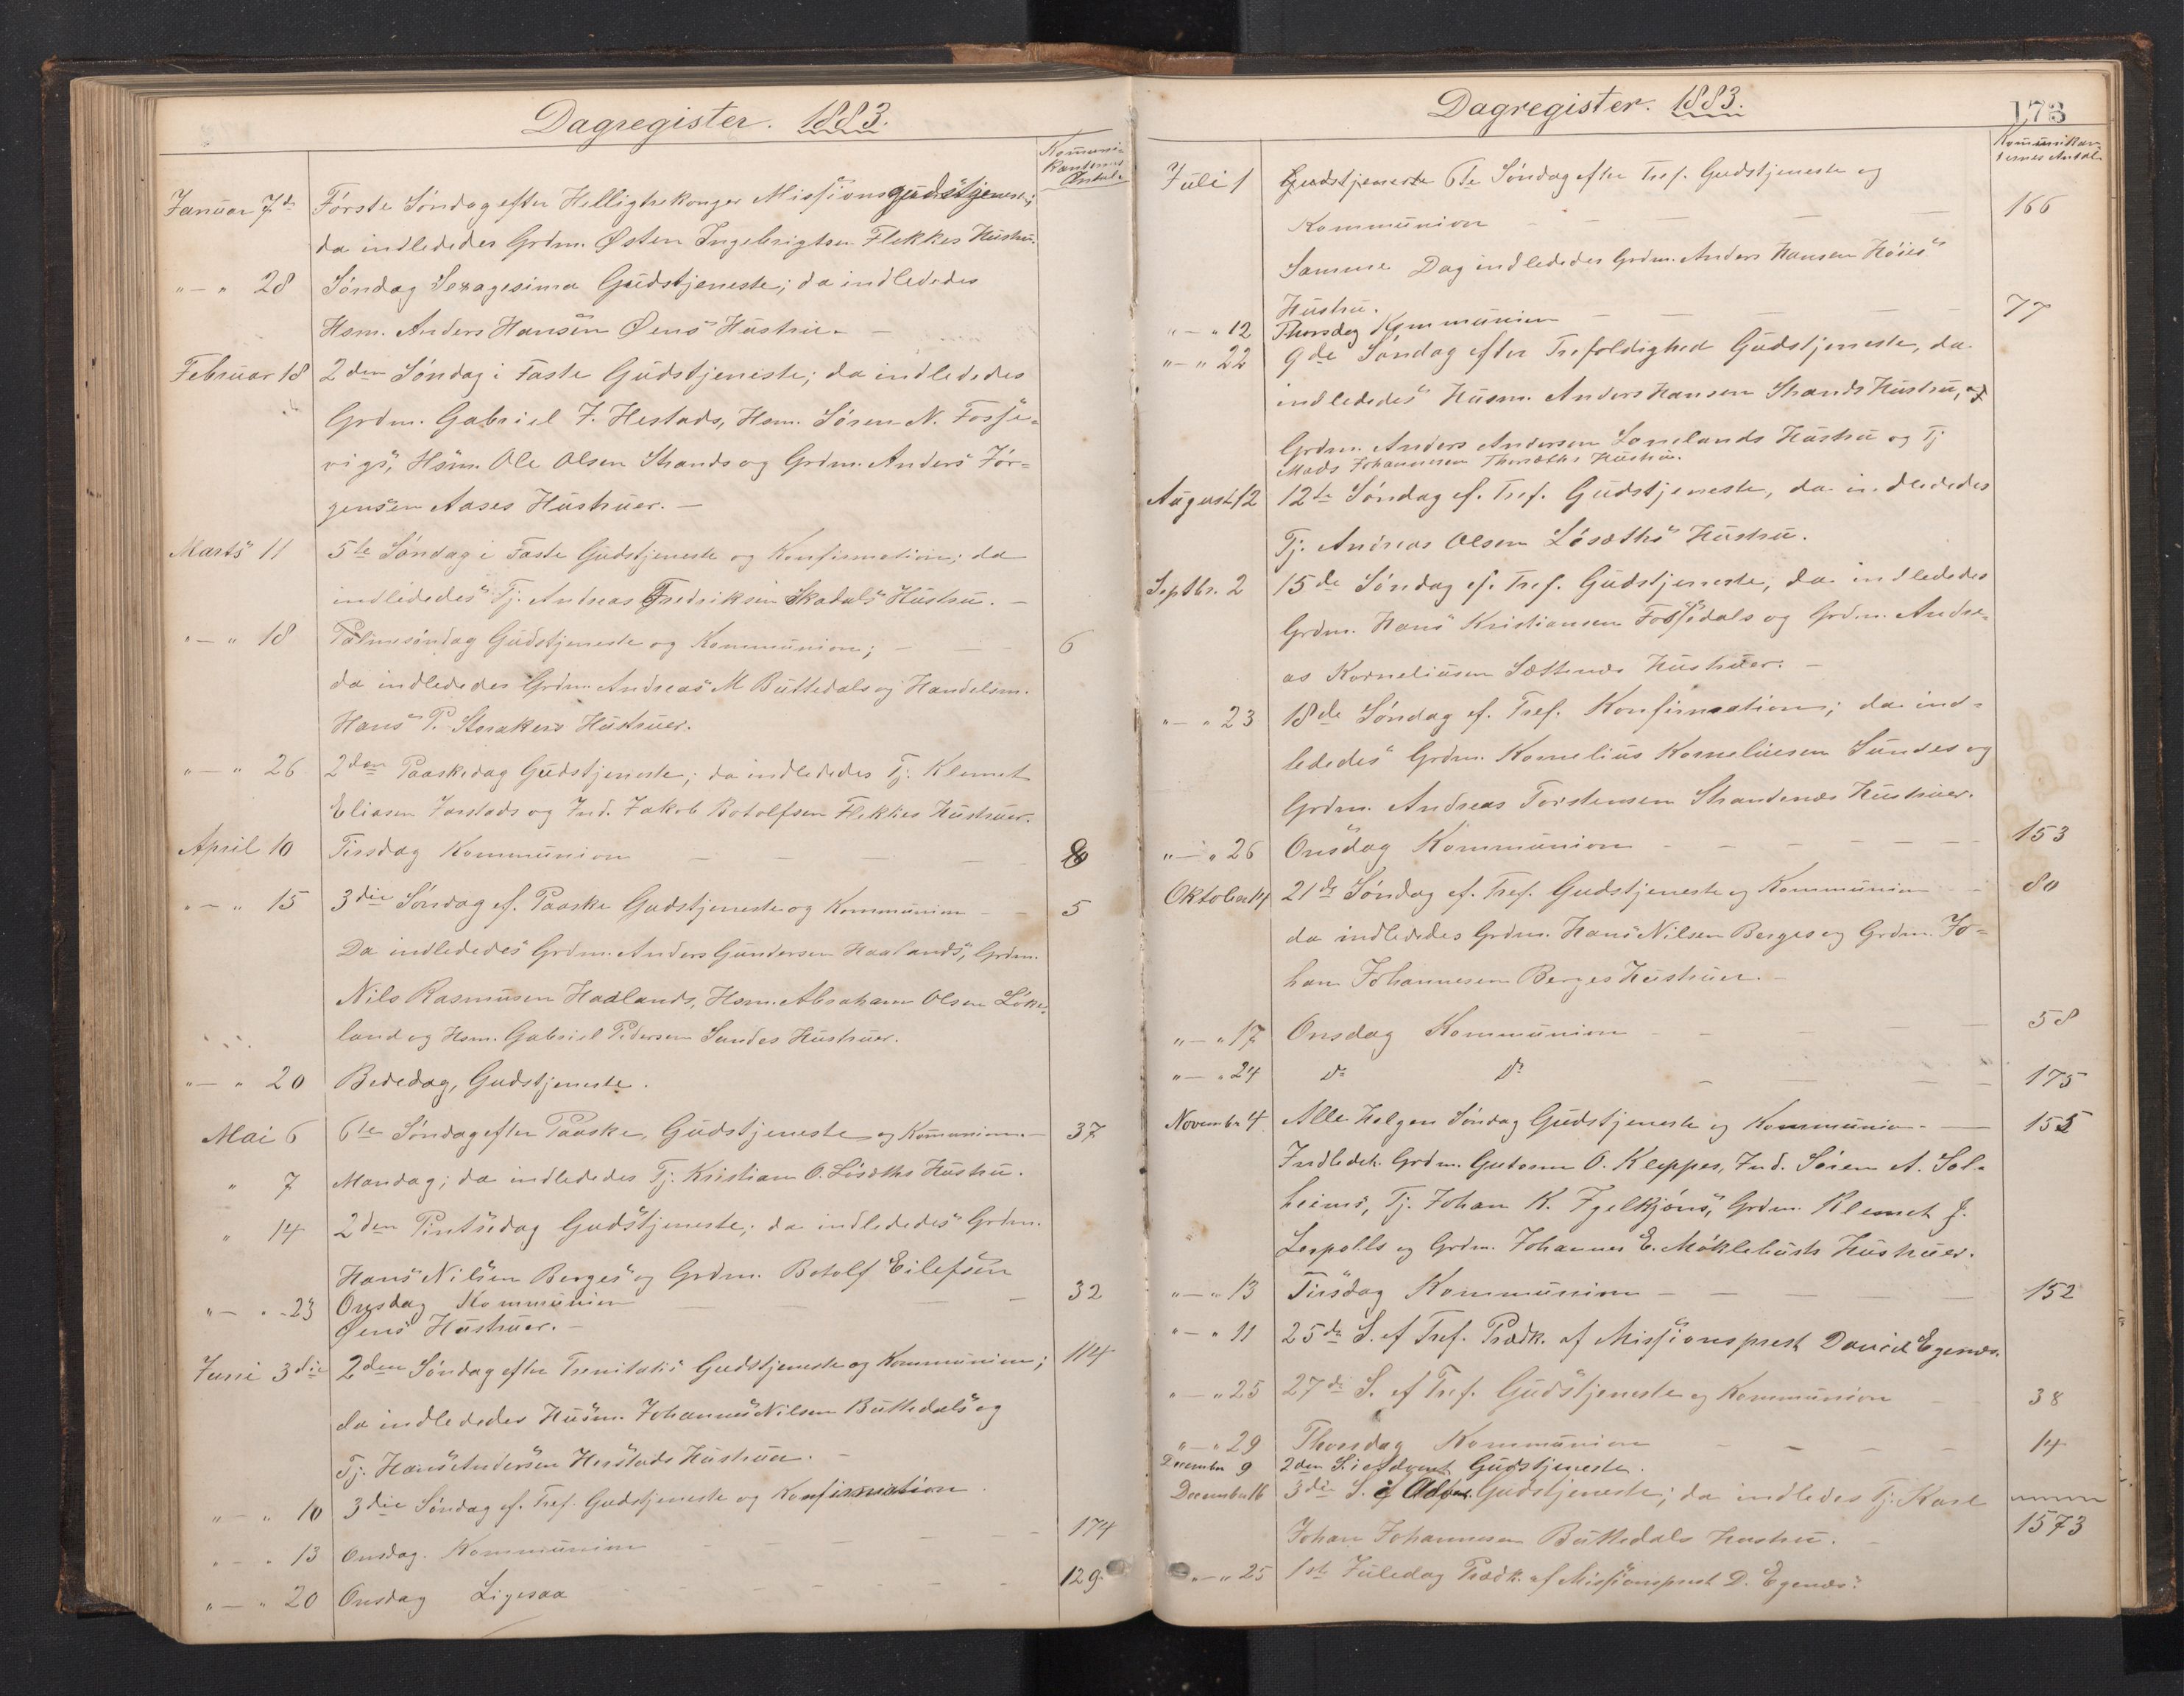 Dagregister. 1883.
Kommuni-
kanternes
Antal.
Januar 7de Første Søndag efter Helligtrekonger Missionsgudstjeneste;
da indlededes Grdm. Østen Ingebrigtsen Flekkes Hustru.
" — " 28 Søndag Sexagesima Gudstjeneste; da indlededes
Hsm. Anders Hansen Øens Hustru. —
Februar 18 2den Søndag i Faste Gudstjeneste; da indlededes
Grdm. Gabriel J. Hestads, Hsm. Søren N. Fosse-
vigs, Hsm. Ole Olsen Strands og Grdm. Anders Jør-
gensen Aases Hustruer. —
Marts 11 5te Søndag i Faste Gudstjeneste og Konfirmation; da
indlededes Tj. Andreas Fredriksen Skadals Hustru. —
" — " 18 Palmesøndag Gudstjeneste og Kommunion; — — — 6
da indlededes Grdm. Andreas M Buttedals og Handelsm.
Hans P. Storakers Hustruer.
" — " 26 2den Paaskedag Gudstjeneste; da indlededes Tj. Klemet
Eliasen Jarstads og Ind. Jakob Botolfsen Flekkes Hustruer.
April 10 Tirsdag Kommunion — — — — 8
" — " 15 3die Søndag ef. Paaske Gudstjeneste og Kommunion — — 5
Da indlededes Grdm. Anders Gundersen Haalands, Grdm.
Nils Rasmusen Haalands, Hsm. Abraham Olsen Løke-
land og Hsm. Gabriel Pedersen Sundes Hustruer.
" — " 20 Bededag, Gudstjeneste.
Mai 6 6te Søndag efter Paaske, Gudstjeneste og Kommunion. — 37
" 7 Mandag; da indlededes Tj. Kristian O. Løsæths Hustru.
" 14 2den Pintsedag Gudstjeneste; da indlededes Grdm.
Hans Nilsen Berges og Grdm. Botolf Eilefsen
" — " 23 Onsdag Kommunion — — — 32
Øens Hustruer. —
Juni 3die 2den Søndag efter Trenitatis Gudstjeneste og Kommunion; 114
da indlededes Husm. Johannes Nilsen Buttedals og
Tj. Hans Andersen Herstads Hustruer. —
" — " 10 3die Søndag ef. Tref. Gudstjeneste og Konfirmation.
" — " 13 Onsdag. Kommunion — — — — — 174
" — " 20 Onsdag Ligesaa — — — — — 129.
Dagregister. 1883.
173
Kommunikan-
ternes Antal.
Juli 1 Gudstjeneste 6te Søndag efter Tref. Gudstjeneste og
Kommunion — — — — 166
Samme Dag indlededes Grdm. Anders Hansen Høies
Hustru.
" — " 12 Thorsdag Kommunion — — — — 77
" — " 22 9de Søndag efter Trefoldighed Gudstjeneste, da
indlededes Husm. Anders Hansen Strands Hustru, og
Grdm. Anders Andersen Lonelands Hustru og Tj
Mads Johannesen Thoræths Hustru.
August 12 12te Søndag ef. Tref. Gudstjeneste, da indlededes
Tj. Andreas Olsen Løsæths Hustru.
Septbr. 2 15de Søndag ef. Tref. Gudstjeneste, da indlededes
Grdm. Hans Kristiansen Fossedals og Grdm. Andre-
as Korneliusen Sættenes Hustruer. —
" — " 23 18de Søndag ef. Tref. Konfirmation; da ind-
lededes Grdm. Kornelius Korneliusen Sundes og
Grdm. Andreas Torstensen Strandenæs Hustruer.
" — " 26 Onsdag Kommunion — — — — — — 153
Oktober 14 21de Søndag ef. Tref. Gudstjeneste og Kommunion — 80
da indlededes Grdm. Hans Nilsen Berges og Grdm. Jo-
han Johannesen Berges Hustruer. —
" — " 17 Onsdag Kommunion — — — — 58
" — " 24 Do Do — — — 175
November 4 Alle Helgen Søndag Gudstjeneste og Kommunion. — 155
Indledet. Grdm. Guttorm O. Kleppes, Ind. Søren A. Sol-
heims, Tj. Johan K. Fgelkjøns, Grdm. Klemet J.
Leepolls og Grdm. Johannes E. Møklebusts Hustruer.
" — " 13 Tirsdag Kommunion — — — — — 152
" — " 11 25de S. ef Tref. Prædk. af Missionsprest David Egenæs.
" — " 25 27de S. ef Tref. Gudstjeneste og Kommunion — — 38
" — " 29 Thorsdag Kommunion — — — — 14
December 9 2den S. i Advent Gudstjeneste.
December 16 3die S. i Advent Gudstjeneste; da indledes Tj. Karl
1573
Johan Johannesen Buttedals Hustru. —
" — " 25 1ste Juledag Prædk. af Missionsprest D. Egenæs.